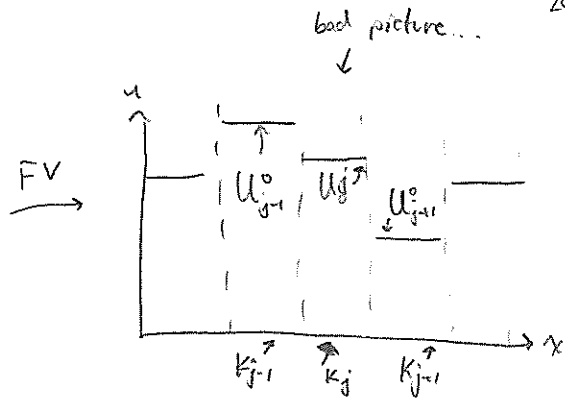 bad picture...
u
FV
U⁰j-1 Uj⁰ U⁰j+1
x
Kj-1 Kj Kj+1